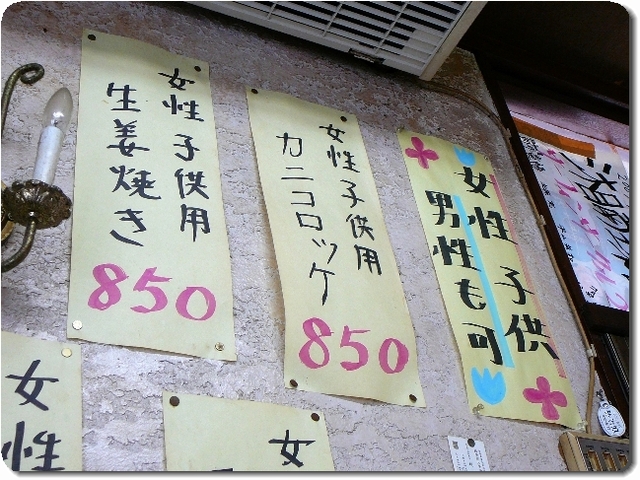 女性子供用
生姜焼き
850
女性子供用
カニコロッケ
850
女性子供
男性も可
女性
女